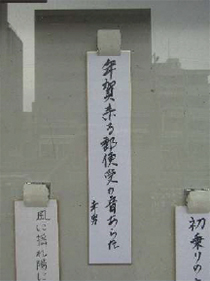 初乗りの
年賀来る郵便受の音あらた
風に揺れ陽に